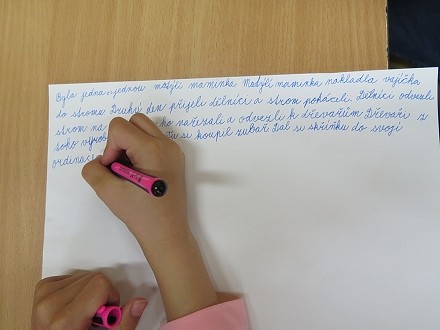 Byla jednou jednou motýlí maminka. Motýlí maminka nakladla vajíčka
do stromu. Druhý den přijeli dělníci a strom pokáceli. Dělníci odvezli
strom na ho nařezali a odvezli k dřevařům. Dřevaři z
toho si koupil zubař. Dal si skříňku do svojí
ordinace